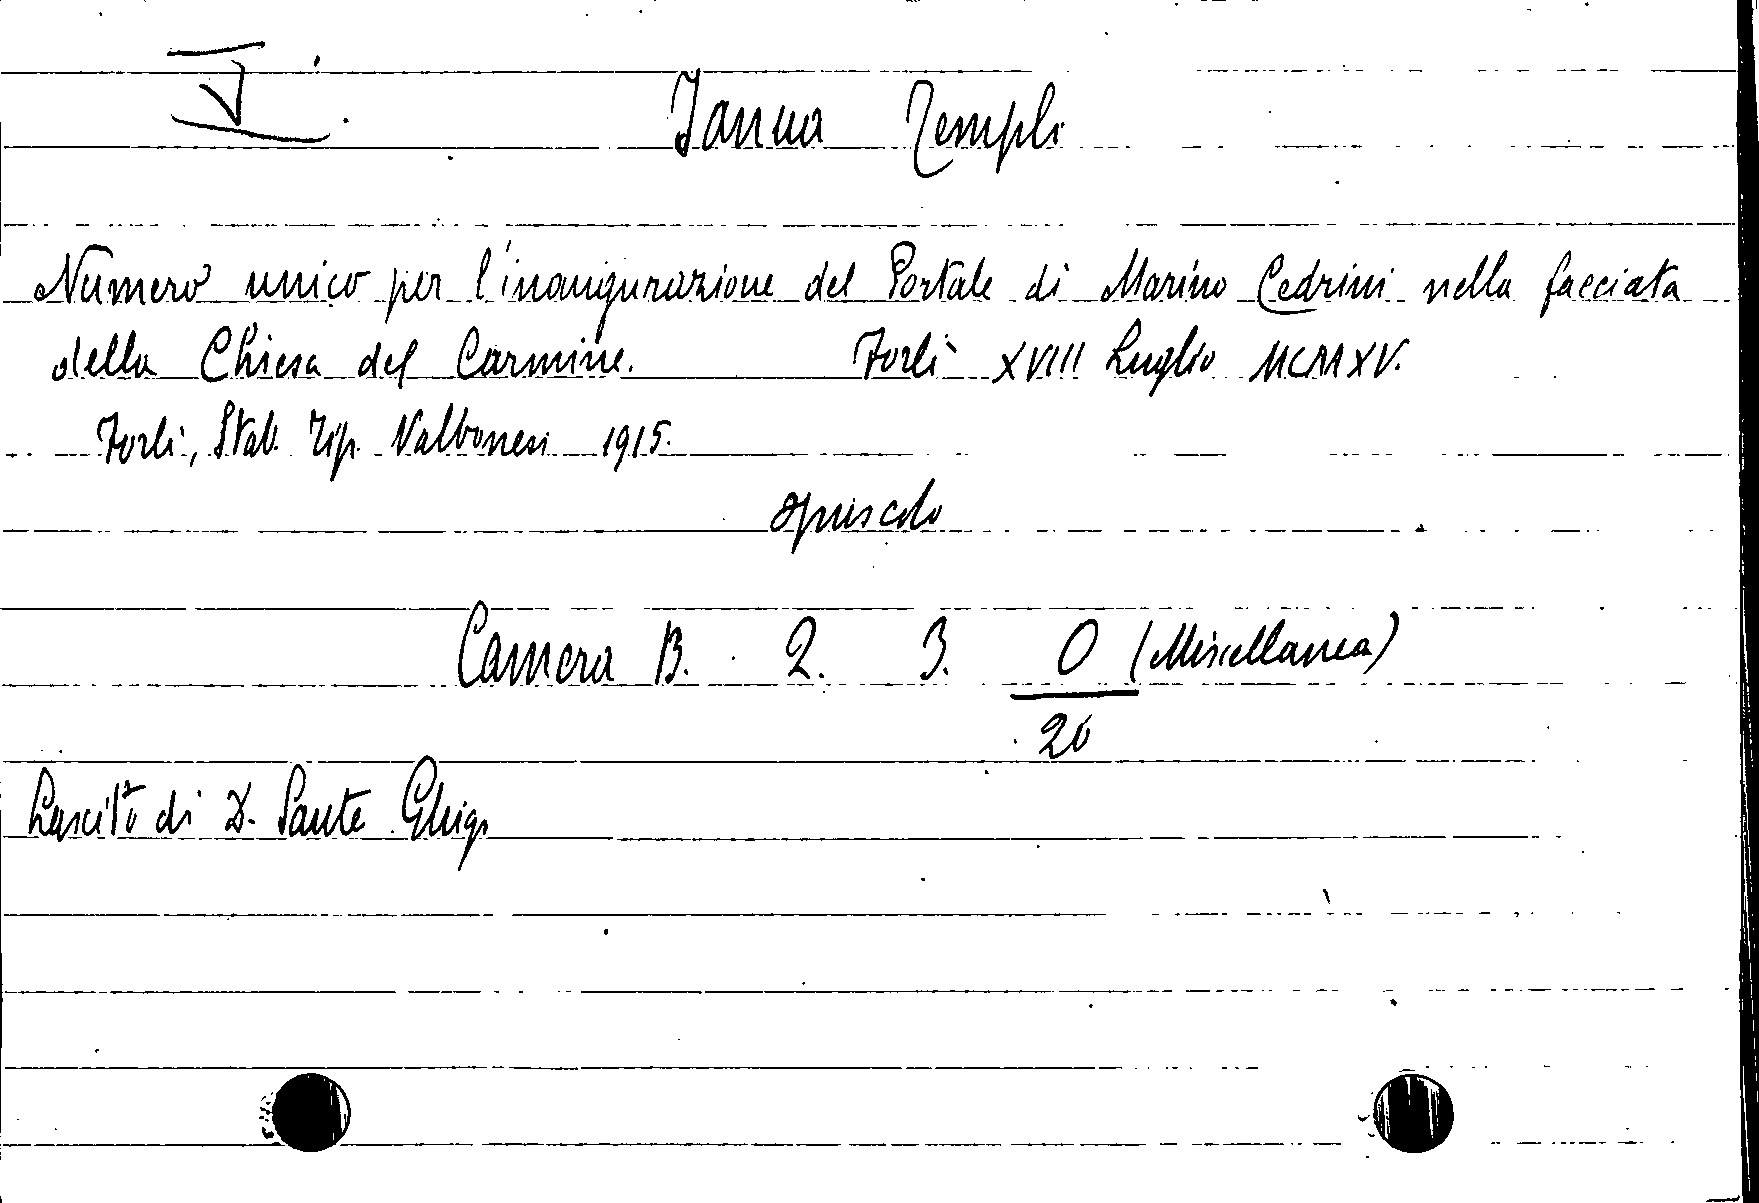 V.
Janua Templi
Numero unico per l'inaugurazione del Portale di Marino Cedrini nella facciata
della Chiesa del Carmine. Forlì XVIII Luglio MCMXV.
Forlì, Stab. Tip. Valbonesi 1915.
opuscolo
Camera B. 2. 3. O (Miscellanea)
20
Lascito di D. Sante Ghigi